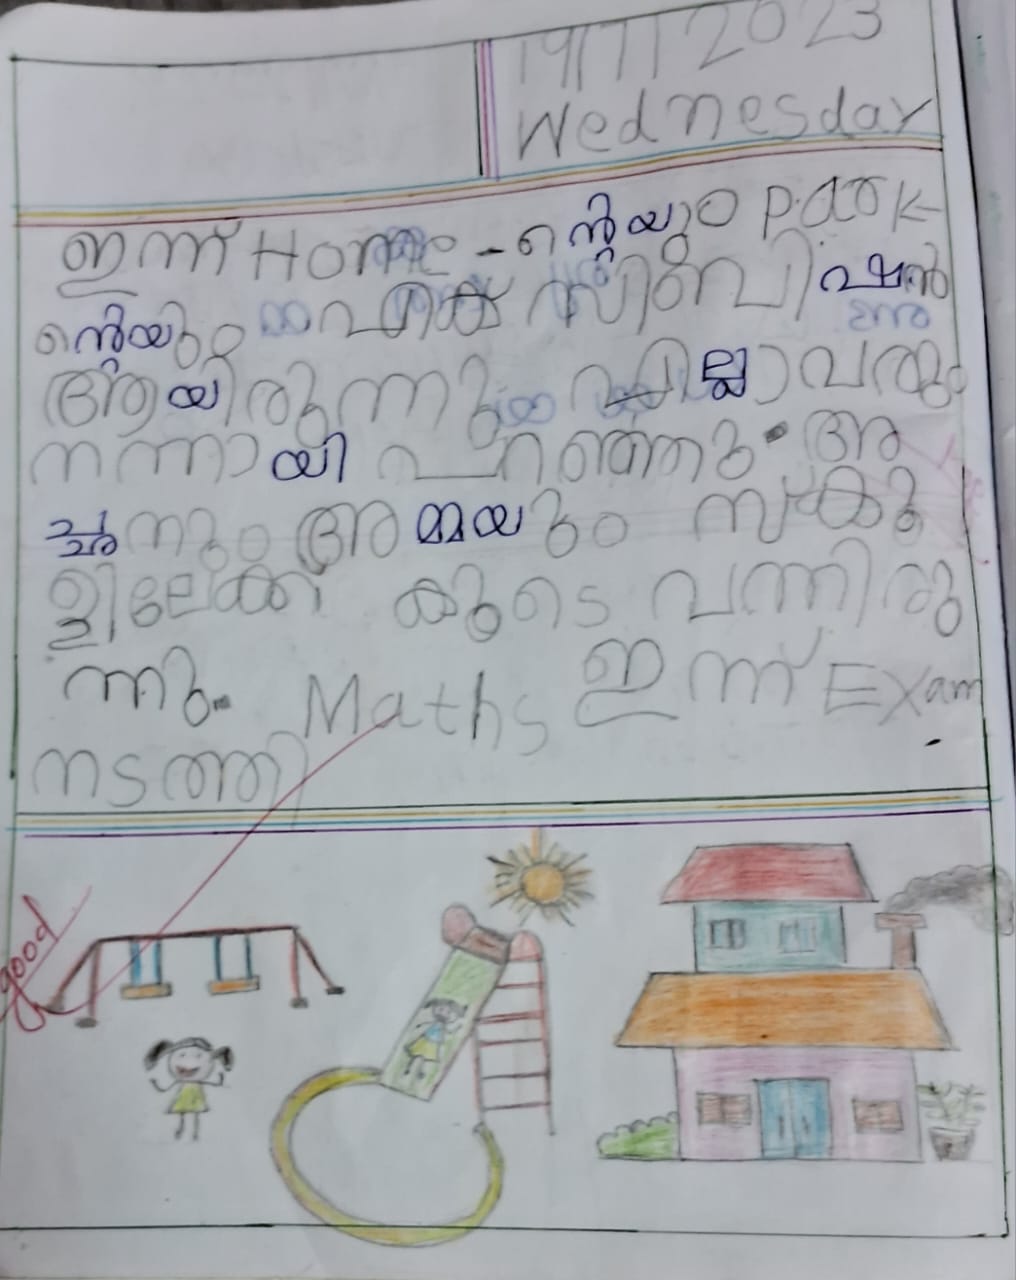 19/7/2023
Wednesday
ഇന്ന് Home-ന്റെയും park
ന്റെയും എക്സിബിഷൻ
ആയിരുന്നു എല്ലാവരും
നന്നായി പറഞ്ഞു. അ
ച്ഛനും അമ്മയും സ്കൂ
ളിലേക്ക് കൂടെ വന്നിരു
ന്നു. Maths ഇന്ന് Exam
നടത്തി
good